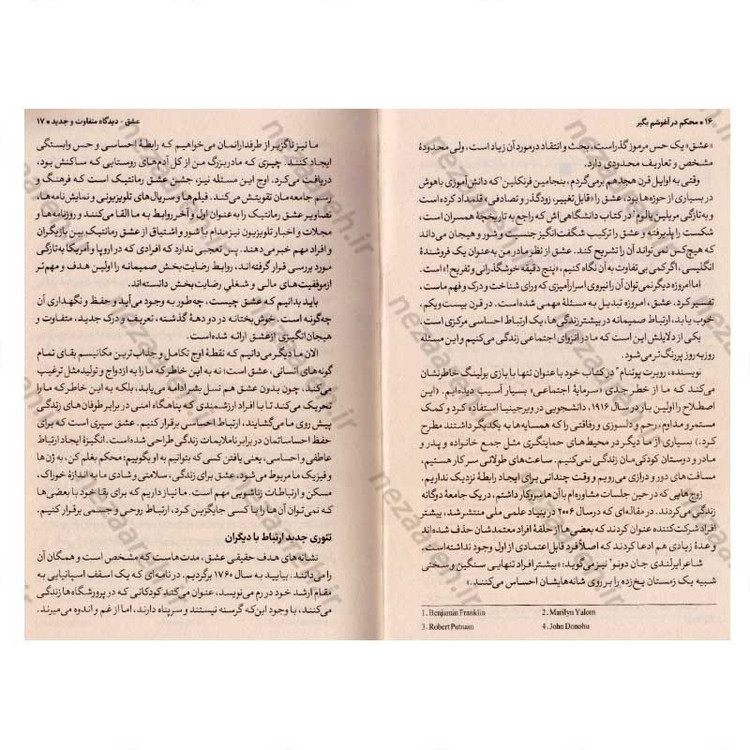 ۱۶ • محکم در آغوشم بگیر
«عشق» یک حس مرموز گذراست، بحث و انتقاد درمورد آن زیاد است، ولی محدودهٔ
مشخص و تعاریف محدودی دارد.
وقتی به اوایل قرن هجدهم برمی‌گردم، بنجامین فرنکلین¹ که دانش‌آموزی باهوش
در بسیاری از حوزه‌ها بود، عشق را «قابل تغییر، زودگذر و تصادفی» قلمداد کرده است
و به‌تازگی مریلین یالوم² در کتاب دانشگاهی‌اش که راجع به تاریخچهٔ همسران است،
شکست را پذیرفته و عشق را ترکیب شگفت‌انگیز جنسیت و شور و هیجان می‌داند
که هیچ‌کس نمی‌تواند آن را تشریح کند. عشق از نظر مادر من به‌عنوان یک فروشندهٔ
انگلیسی، اگر کمی بی‌تفاوت به آن نگاه کنیم، «پنج دقیقه خوشگذرانی و تفریح!» است.
اما امروزه دیگر نمی‌توان آن را نیروی اسرارآمیزی که ورای شناخت و درک و فهم ماست،
تفسیر کرد. عشق، امروزه تبدیل به مسئله مهمی شده است. در قرن بیست‌ویکم،
خوب یا بد، ارتباط صمیمانه در بیشتر زندگی‌ها، یک ارتباط احساسی مرکزی است.
یکی از دلایلش این است که ما در انزوای اجتماعی زندگی می‌کنیم و این مسئله
روزبه‌روز پررنگ‌تر می‌شود.
نویسنده، روبرت پوتنام³ در کتاب خود با عنوان تنها با بازی بولینگ خاطرنشان
می‌کند که ما از خطر جدی «سرمایهٔ اجتماعی» بسیار آسیب دیده‌ایم. (این
اصطلاح را اولین بار در سال ۱۹۱۶، دانشجویی در ویرجینیا استفاده کرد و کمک
مستمر و مداوم «رحم و دلسوزی و رفاقتی را که همسایه‌ها به یکدیگر داشتند مطرح
کرد.) بسیاری از ما دیگر در محیط‌های حمایتگری مثل جمع خانواده و پدر و
مادر و دوستان کودکی‌مان زندگی نمی‌کنیم. ساعت‌های طولانی سر کار هستیم،
مسافت‌های دور و درازی می‌رویم و وقت چندانی برای ایجاد رابطهٔ نزدیک نداریم.
زوج‌هایی که در حین جلسات مشاوره‌ام با آن‌ها سروکار داشتم، در یک جامعهٔ دوگانه
زندگی می‌کردند. در مقاله‌ای که در سال ۲۰۰۶ در بنیاد علمی ملی منتشر شد، بیشتر
افراد شرکت‌کننده عنوان کردند که بعضی‌ها از حلقهٔ افراد معتمدشان حذف شده‌اند
و عدهٔ زیادی هم ادعا کردند که اصلاً فرد قابل‌اعتمادی از اول وجود نداشته است.
شاعر ایرلندی جان دونو⁴ نیز می‌گوید: «بیشتر افراد تنهایی سنگین و سختی
شبیه یک زمستان یخ‌زده را بر روی شانه‌هایشان احساس می‌کنند.»
1. Benjamin Franklin
2. Marilyn Yalom
3. Robert Putnam
4. John Donohu
عشق - دیدگاه متفاوت و جدید • ۱۷
ما نیز ناگزیر از طرفدارانمان می‌خواهیم که رابطهٔ احساسی و حس وابستگی
ایجاد کنند. چیزی که مادربزرگ من از کل آدم‌های روستایی که ساکنش بود،
دریافت می‌کرد. اوج این مسئله نیز، جشن عشق رمانتیک است که فرهنگ و
رسم جامعه‌مان تقویتش می‌کند. فیلم‌ها و سریال‌های تلویزیونی و نمایش‌نامه‌ها،
تصاویر عشق رمانتیک را به‌عنوان اول و آخر روابط به ما القا می‌کنند و روزنامه‌ها و
مجلات و اخبار تلویزیون نیز مدام با شور و اشتیاق از عشق رمانتیک بین بازیگران
و افراد مهم خبر می‌دهند. پس تعجبی ندارد که افرادی که در اروپا و آمریکا به‌تازگی
مورد بررسی قرار گرفته‌اند، روابط رضایت‌بخش صمیمانه را اولین هدف و مهم‌تر
از موفقیت‌های مالی و شغلی رضایت‌بخش دانسته‌اند.
باید بدانیم که عشق چیست، چه‌طور به وجود می‌آید و حفظ و نگهداری آن
چه‌گونه است. خوش‌بختانه در دو دههٔ گذشته، تعریف و درک جدید، متفاوت و
هیجان‌انگیزی از عشق ارائه شده است.
الان ما دیگر می‌دانیم که نقطهٔ اوج تکامل و جذاب‌ترین مکانیسم بقای تمام
گونه‌های انسانی، عشق است؛ نه به این خاطر که ما را به ازدواج و تولیدمثل ترغیب
می‌کند، چون بدون عشق هم نسل بشر ادامه می‌یابد، بلکه به این خاطر که ما را
تحریک می‌کند تا با افراد ارزشمندی که پناهگاه امنی در برابر طوفان‌های زندگی
پیش روی ما می‌گشایند، ارتباط احساسی برقرار کنیم. عشق سپری است که برای
حفظ احساساتمان در برابر ناملایمات زندگی طراحی شده است. انگیزهٔ ایجاد ارتباط
عاطفی و احساسی، یعنی یافتن کسی که بتوانیم به او بگوییم: «محکم بغلم کن، به ژن‌ها
و فیزیک ما مربوط می‌شود. عشق برای زندگی، سلامتی و شادی ما به‌اندازهٔ خوراک،
مسکن و ارتباطات زناشویی مهم است. ما نیاز داریم که برای بقا خود با بعضی‌ها
که نمی‌توان آن‌ها را با کسی جایگزین کرد، ارتباط روحی و جسمی برقرار کنیم.
تئوری جدید ارتباط با دیگران
نشانه‌های هدف حقیقی عشق، مدت‌هاست که مشخص است و همگان آن
را می‌دانند. بیایید به سال ۱۷۶۰ برگردیم. در نامه‌ای که یک اسقف اسپانیایی به
مقام ارشد خود در رم می‌نویسد، عنوان می‌کند کودکانی که در پرورشگاه‌ها زندگی
می‌کنند، با وجود این‌که گرسنه نیستند و سرپناه دارند، اما از غم و اندوه می‌میرند.
nezaareh.ir